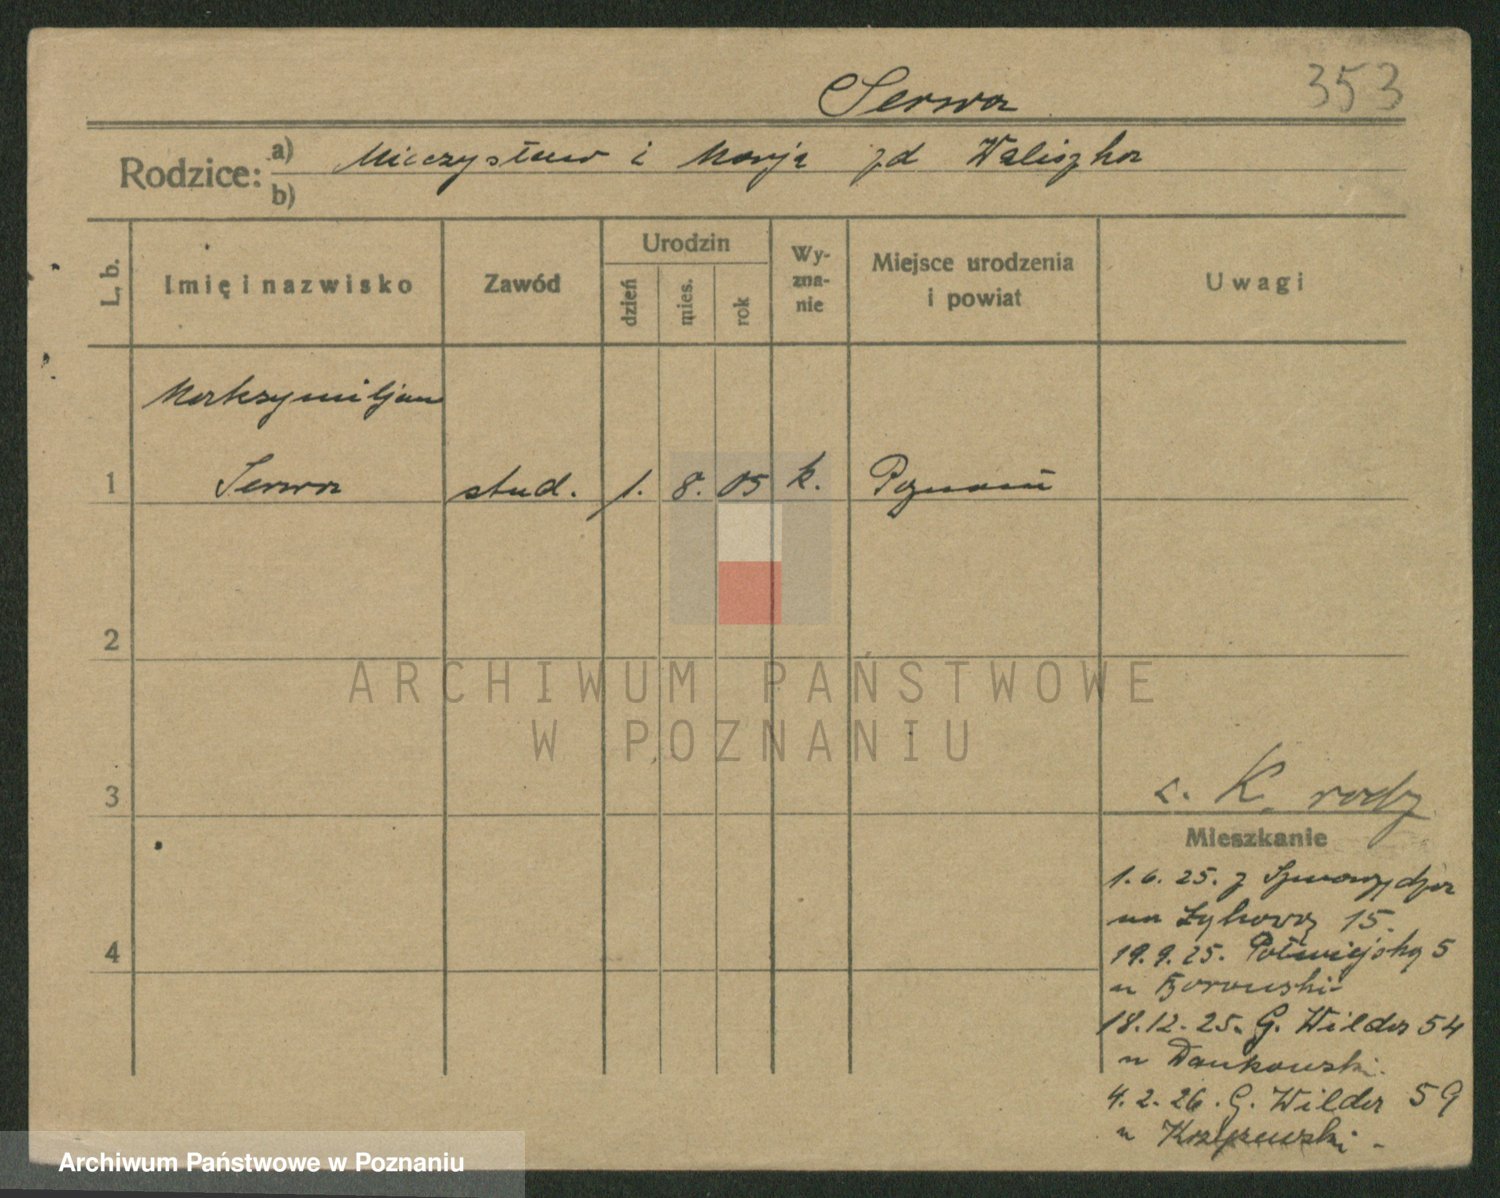 Serwa 353
Rodzice: a) Mieczysław i Marja zd Waliszka
b)
L. b.
Imię i nazwisko
Zawód
Urodzin
dzień
mies.
rok
Wy-
zna-
nie
Miejsce urodzenia
i powiat
Uwagi
Maksymiljan
1 Serwa stud. 1. 8. 05 k. Poznań
2
ARCHIWUM PAŃSTWOWE
W POZNANIU
3
K. rodz
Mieszkanie
1.6.25. z
na Łąkową 15.
19.9.25. Półwiejską 5
u Borowski
4
18.12.25. G. Wilda 54
u Dankowski.
4.2.26. G. Wilda 59
u
Archiwum Państwowe w Poznaniu